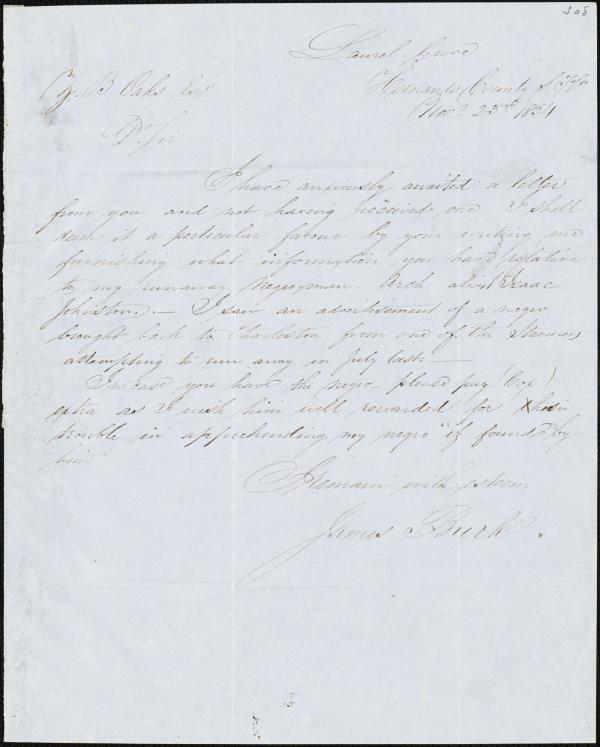 308
Laurel Grove
Hernando County
Nov. 23rd 1854
Z. B. Oaks Esqr
Dr Sir
I have anxiously awaited a letter
from you and not having received one I shall
deem it a particular favour by your writing me
furnishing what information you have relative
to my runaway Negroman Arch alias Isaac
Johnston. — I saw an advertisement of a negro
brought back to Charleston from one of the Steamers
attempting to run away in July last. —
In case you have the negro please pay (Cox)
extra as I wish him well rewarded for his
trouble in apprehending my negro "if found" by
him
I remain with esteem
James Burk.